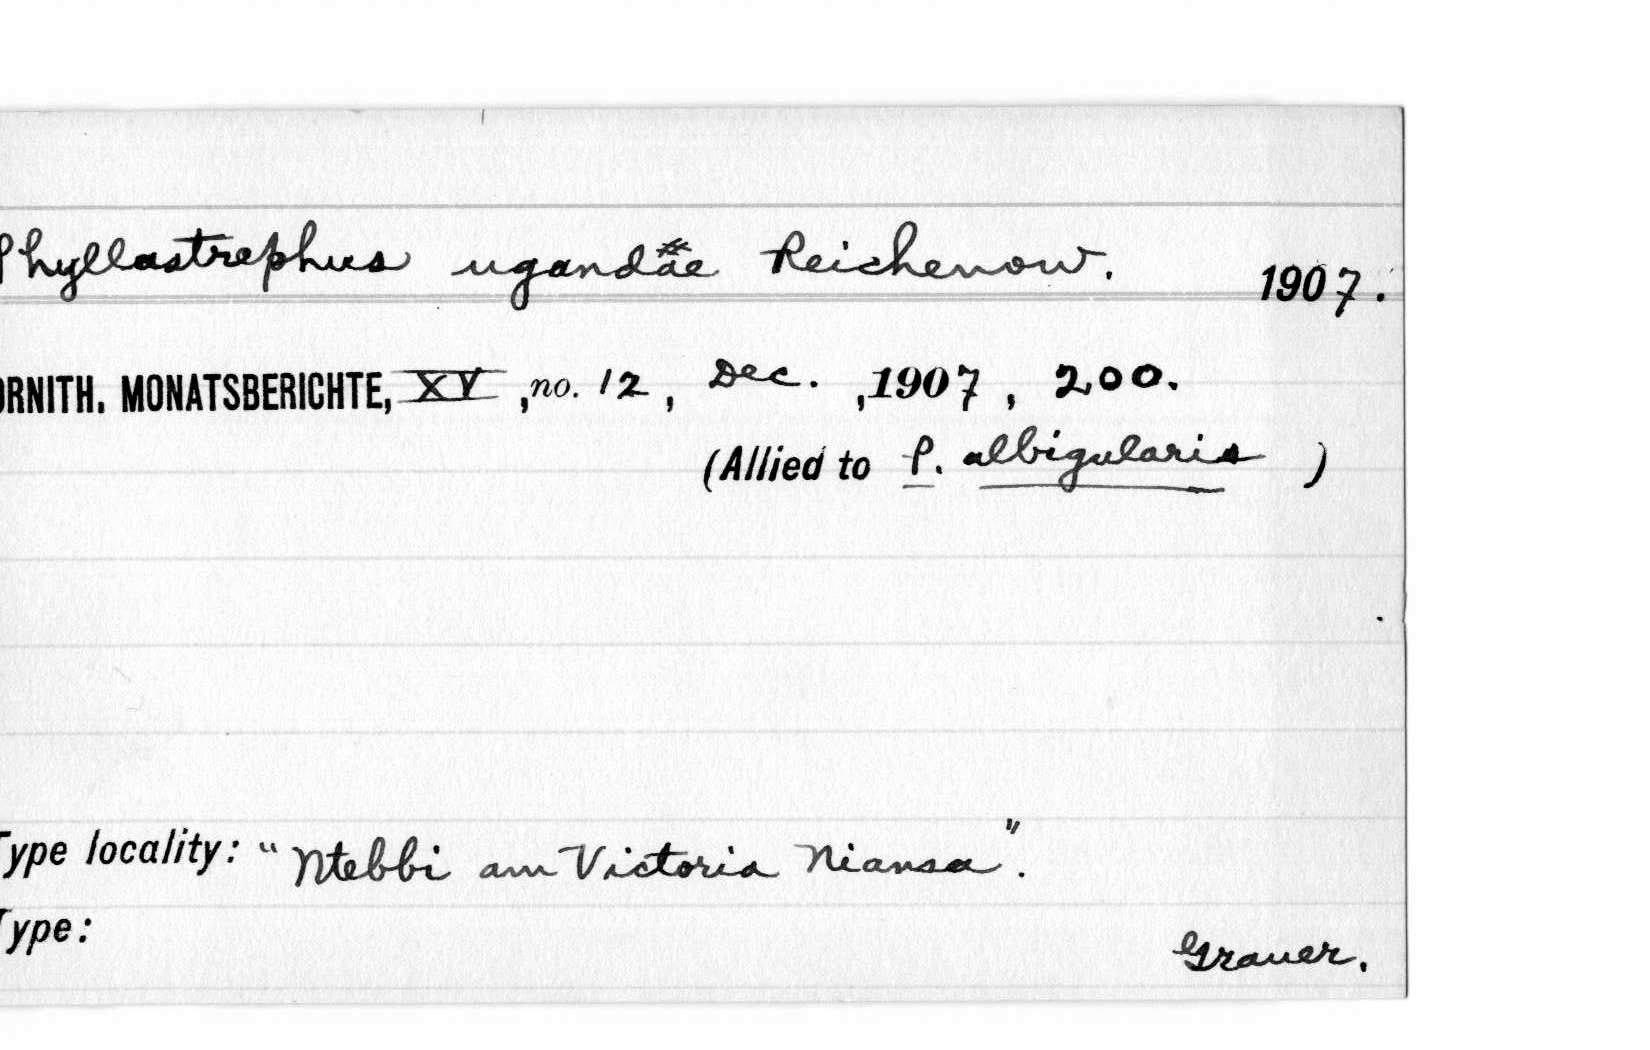 Phyllastrephus ugandae Reichenow. 1907.
ORNITH. MONATSBERICHTE, XV, no. 12, Dec. , 1907, 200.
(Allied to P. albigularis )
Type locality: "Ntebbi am Victoria Niansa".
Type:
Grauer.